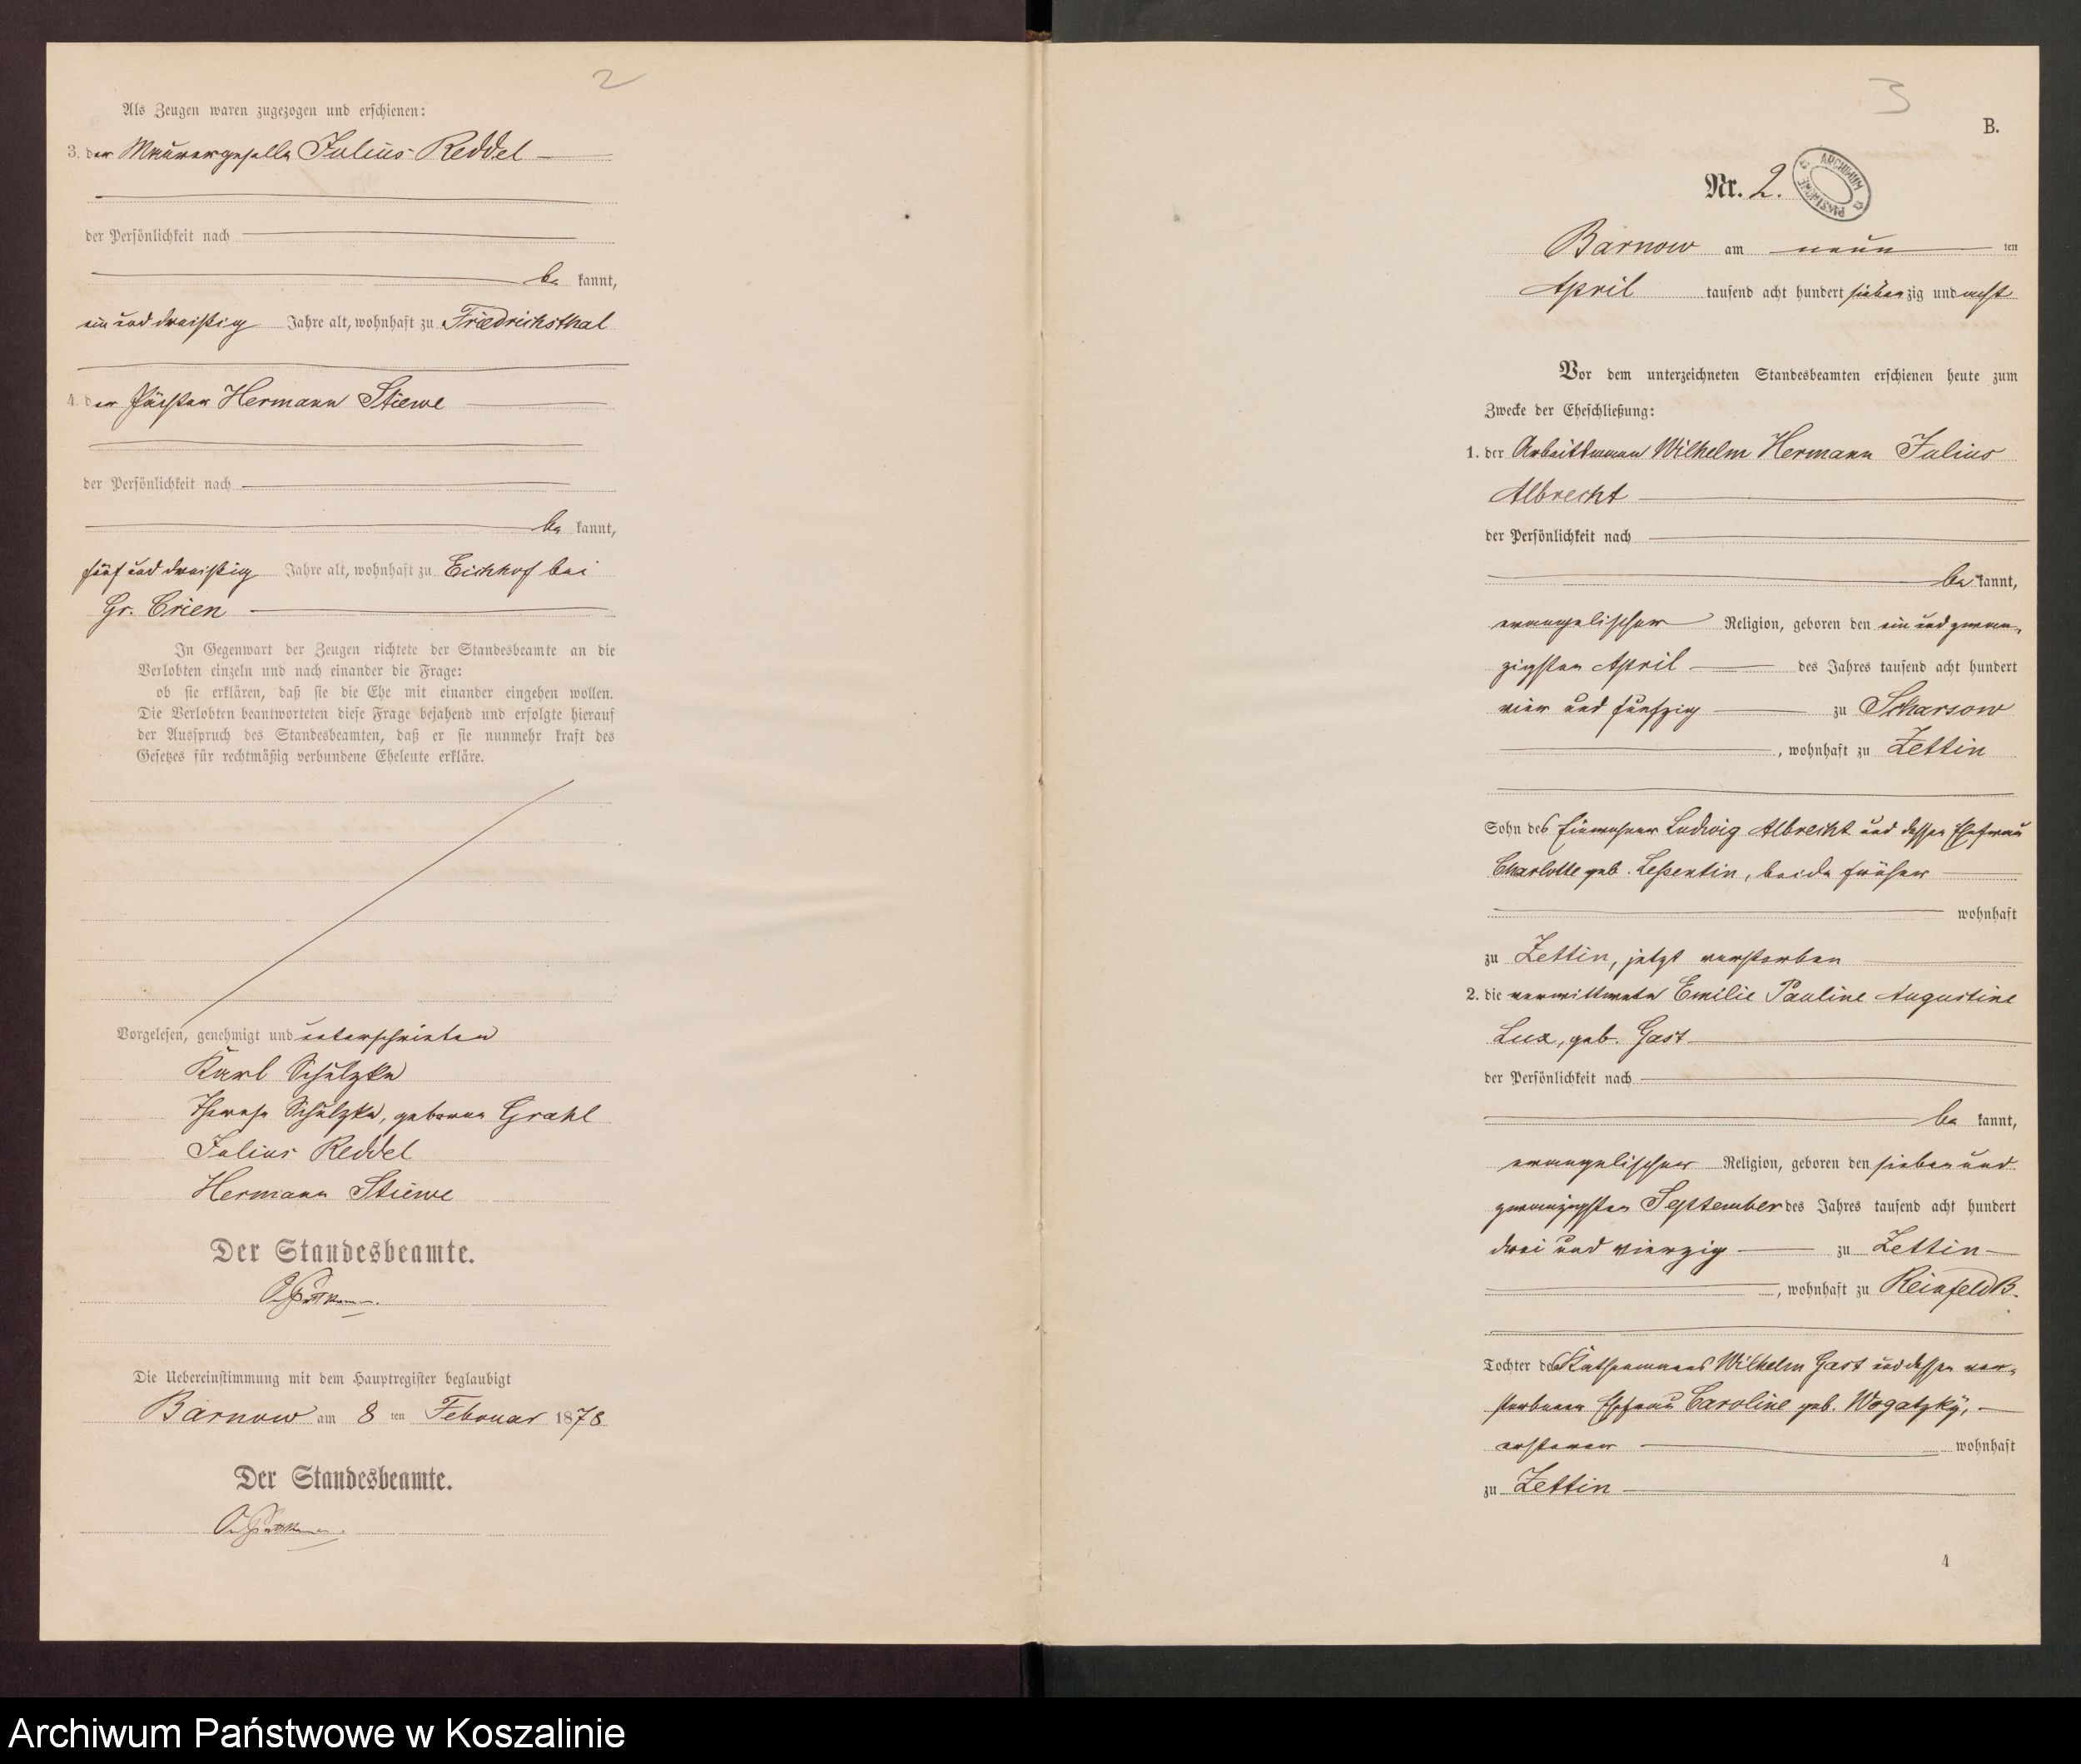 2
Als Zeugen waren zugezogen und erschienen:
3. der Maurergeselle Julius Reddel
der Persönlichkeit nach
be kannt,
ein und dreißig Jahre alt, wohnhaft zu Friedrichsthal
4. der Pächter Hermann Stiewe
der Persönlichkeit nach
be kannt,
fünf und dreißig Jahre alt, wohnhaft zu Eichhof bei
Gr. Crien
In Gegenwart der Zeugen richtete der Standesbeamte an die
Verlobten einzeln und nach einander die Frage:
ob sie erklären, daß sie die Ehe mit einander eingehen wollen.
Die Verlobten beantworteten diese Frage bejahend und erfolgte hierauf
der Ausspruch des Standesbeamten, daß er sie nunmehr kraft des
Gesetzes für rechtmäßig verbundene Eheleute erkläre.
Vorgelesen, genehmigt und unterschrieben
Karl Schulzke
Therese Schulzke, geborne Grahl
Julius Reddel
Hermann Stiewe
Der Standesbeamte.
Die Uebereinstimmung mit dem Hauptregister beglaubigt
Barnow am 8 ten Februar 1878
Der Standesbeamte.
3
B.
Nr. 2.
ARCHIWUM PAŃSTWOWE
Barnow am neun ten
April tausend acht hundert siebenzig und acht
Vor dem unterzeichneten Standesbeamten erschienen heute zum
Zwecke der Eheschließung:
1. der Arbeitsmann Wilhelm Hermann Julius
Albrecht
der Persönlichkeit nach
be kannt,
evangelischer Religion, geboren den ein und zwan-
zigsten April des Jahres tausend acht hundert
vier und funfzig zu Scharsow
, wohnhaft zu Zettin
Sohn des Einwohner Ludwig Albrecht und dessen Ehefrau
Charlotte geb. Leßentin, beide früher
wohnhaft
zu Zettin, jetzt verstorben
2. die verwittwete Emilie Pauline Augustine
Lux, geb. Gast
der Persönlichkeit nach
be kannt,
evangelischer Religion, geboren den sieben und
zwanzigsten September des Jahres tausend acht hundert
drei und vierzig zu Zettin
, wohnhaft zu Reinfeld B.
Tochter des Kathenmanns Wilhelm Gast und dessen ver-
storbenen Ehefrau Caroline geb. Wogatzky,
ersterer wohnhaft
zu Zettin
4
Archiwum Państwowe w Koszalinie